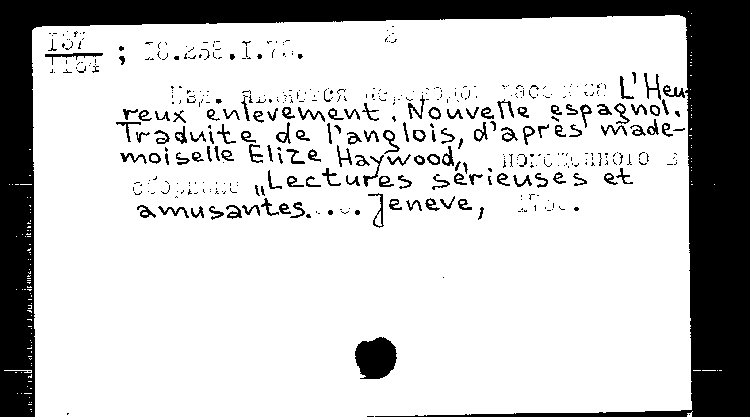 2
I37
1184 ; 18.258.I.76.
Изд. является переводом рассказа L'Heu-
reux enlèvement. Nouvelle espagnol.
Traduite de l'anglois, d'après made-
moiselle Elize Haywood„ помещенного в
сборнике „Lectures sérieuses et
amusantes.... Jeneve,